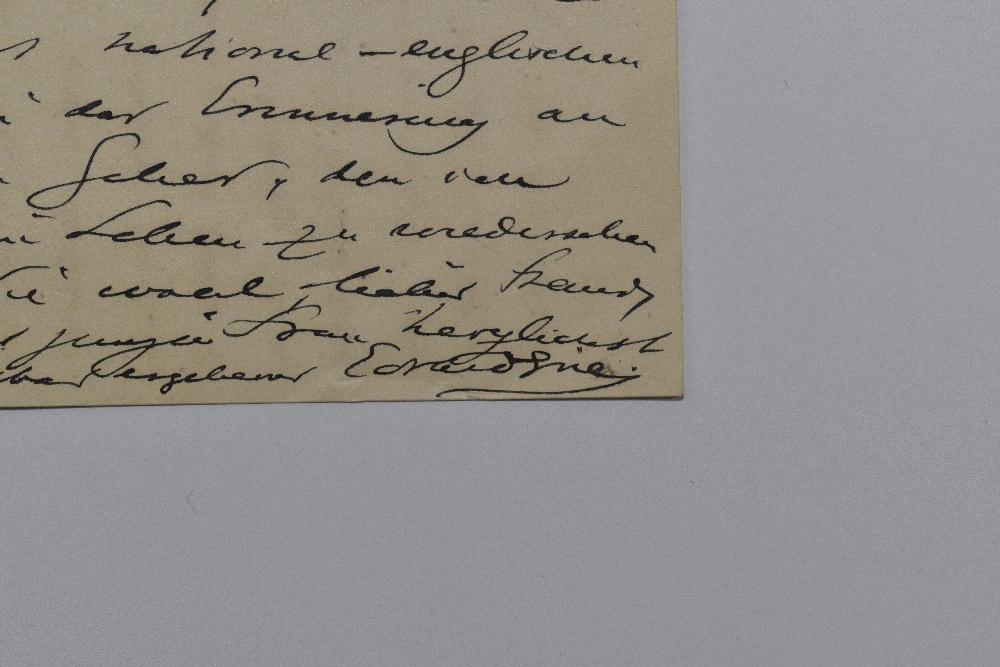 national-englischen
der Erinnerung an
Scherz, den ich
Leben zu wiedersehen
Sie wohl, lieber Freund,
jungen Frau herzlichst
ergebener Edvard Grieg.